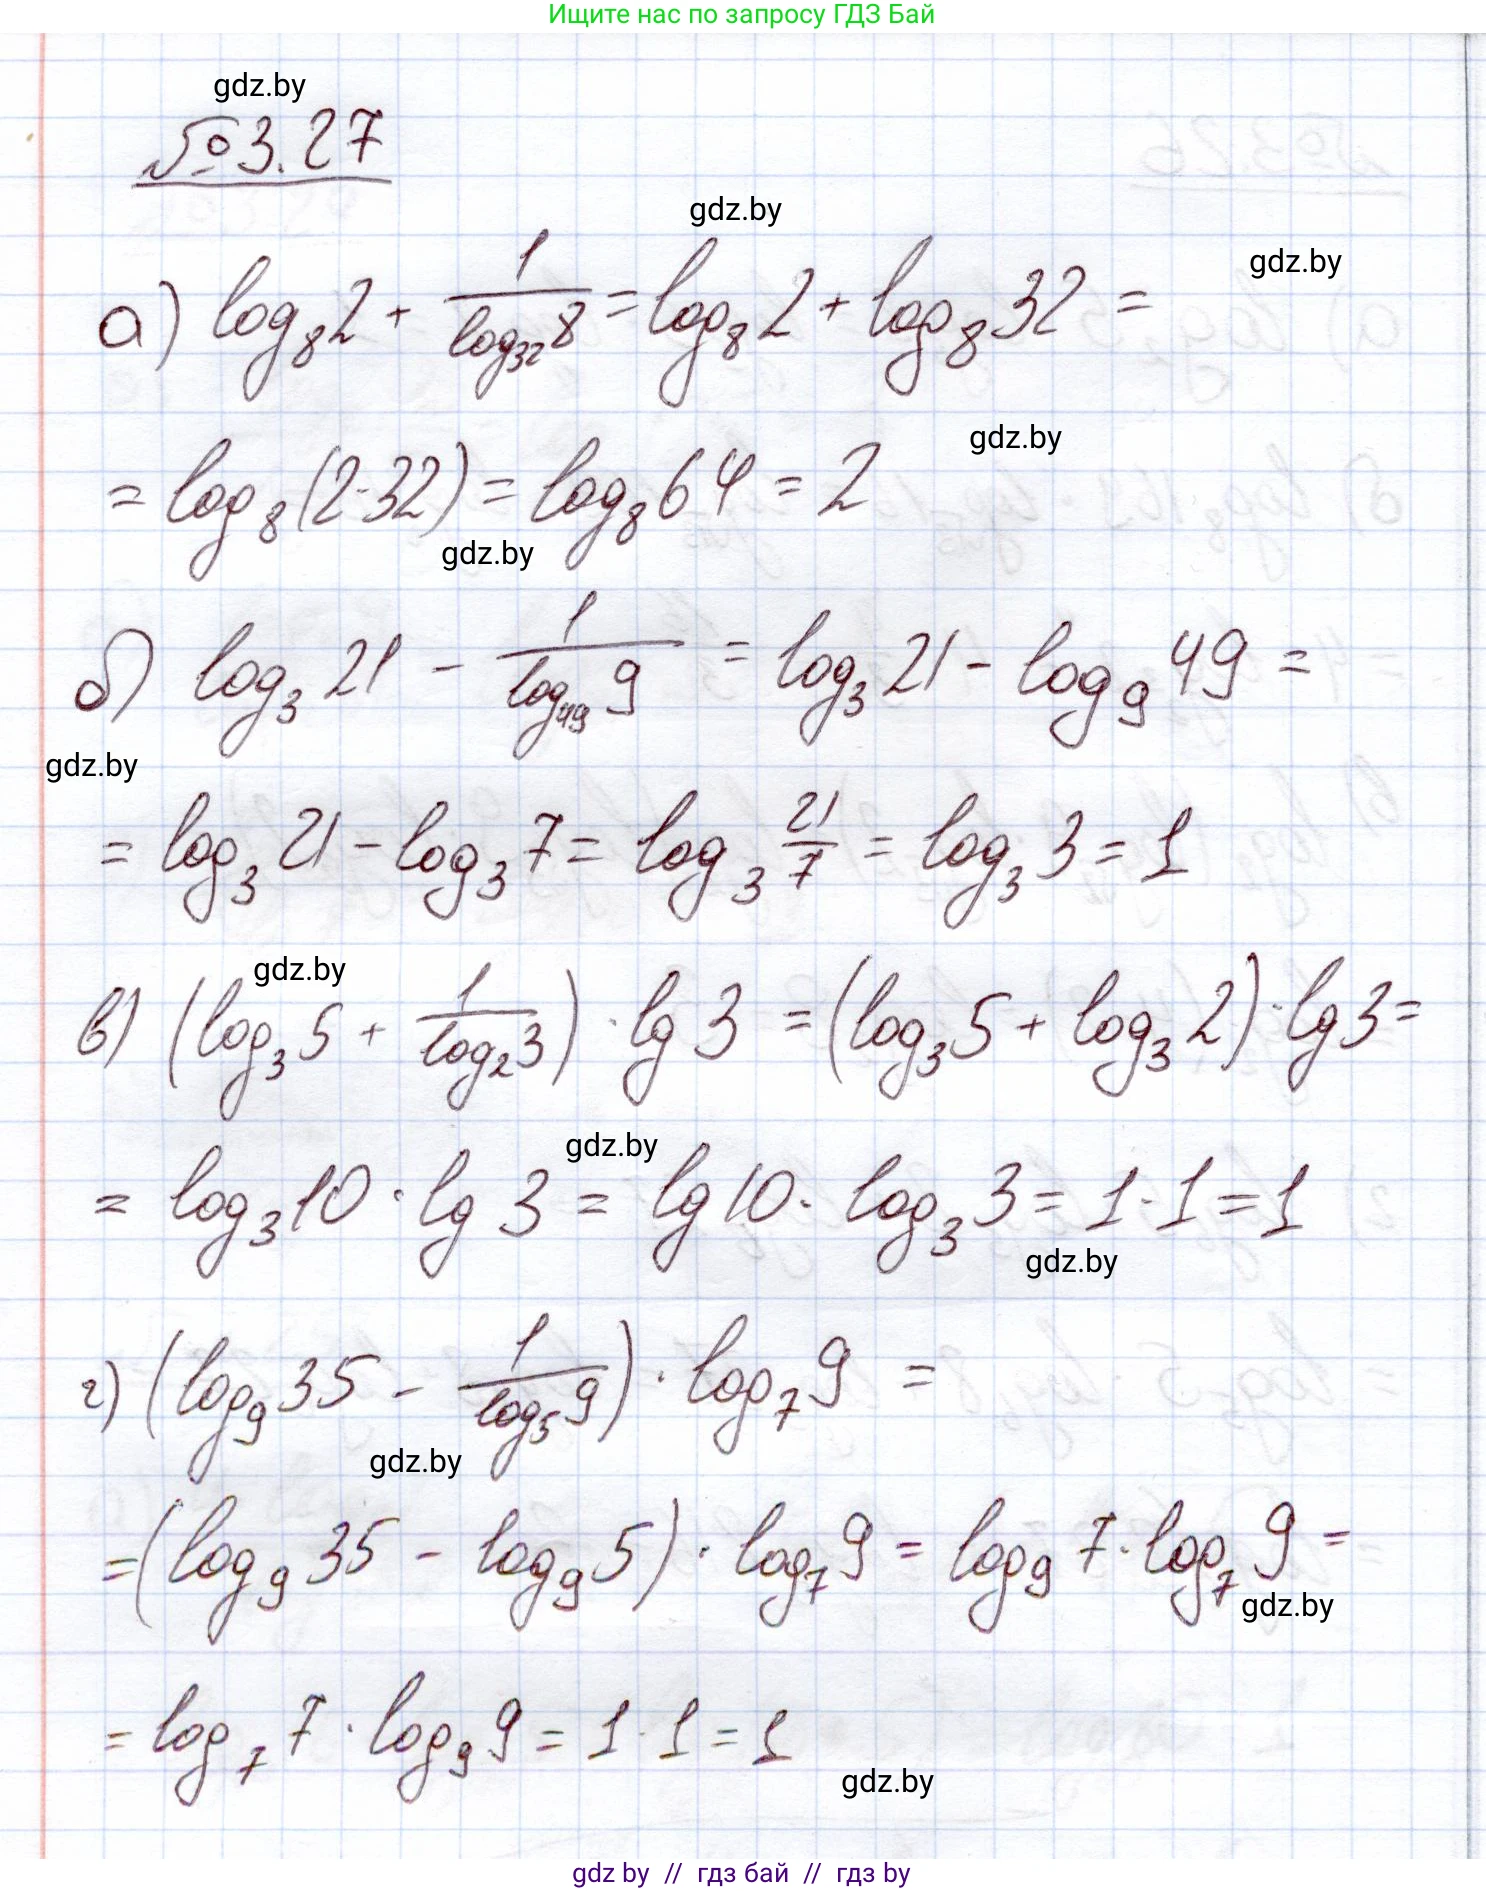 Ищите нас по запросу ГДЗ Бай
gdz.by
№3.27
gdz.by
gdz.by
а) log₈2 + 1/log₃₂8 = log₈2 + log₈32 =
gdz.by
= log₈(2·32) = log₈64 = 2
gdz.by
б) log₃21 - 1/log₄₉9 = log₃21 - log₉49 =
gdz.by
= log₃21 - log₃7 = log₃ 21/7 = log₃3 = 1
gdz.by
в) (log₃5 + 1/log₂3) · lg3 = (log₃5 + log₃2) · lg3 =
gdz.by
= log₃10 · lg3 = lg10 · log₃3 = 1·1 = 1
gdz.by
г) (log₉35 - 1/log₅9) · log₇9 =
gdz.by
= (log₉35 - log₉5) · log₇9 = log₉7 · log₇9 =
gdz.by
= log₇7 · log₉9 = 1·1 = 1
gdz.by
gdz by // гдз бай // гдз by